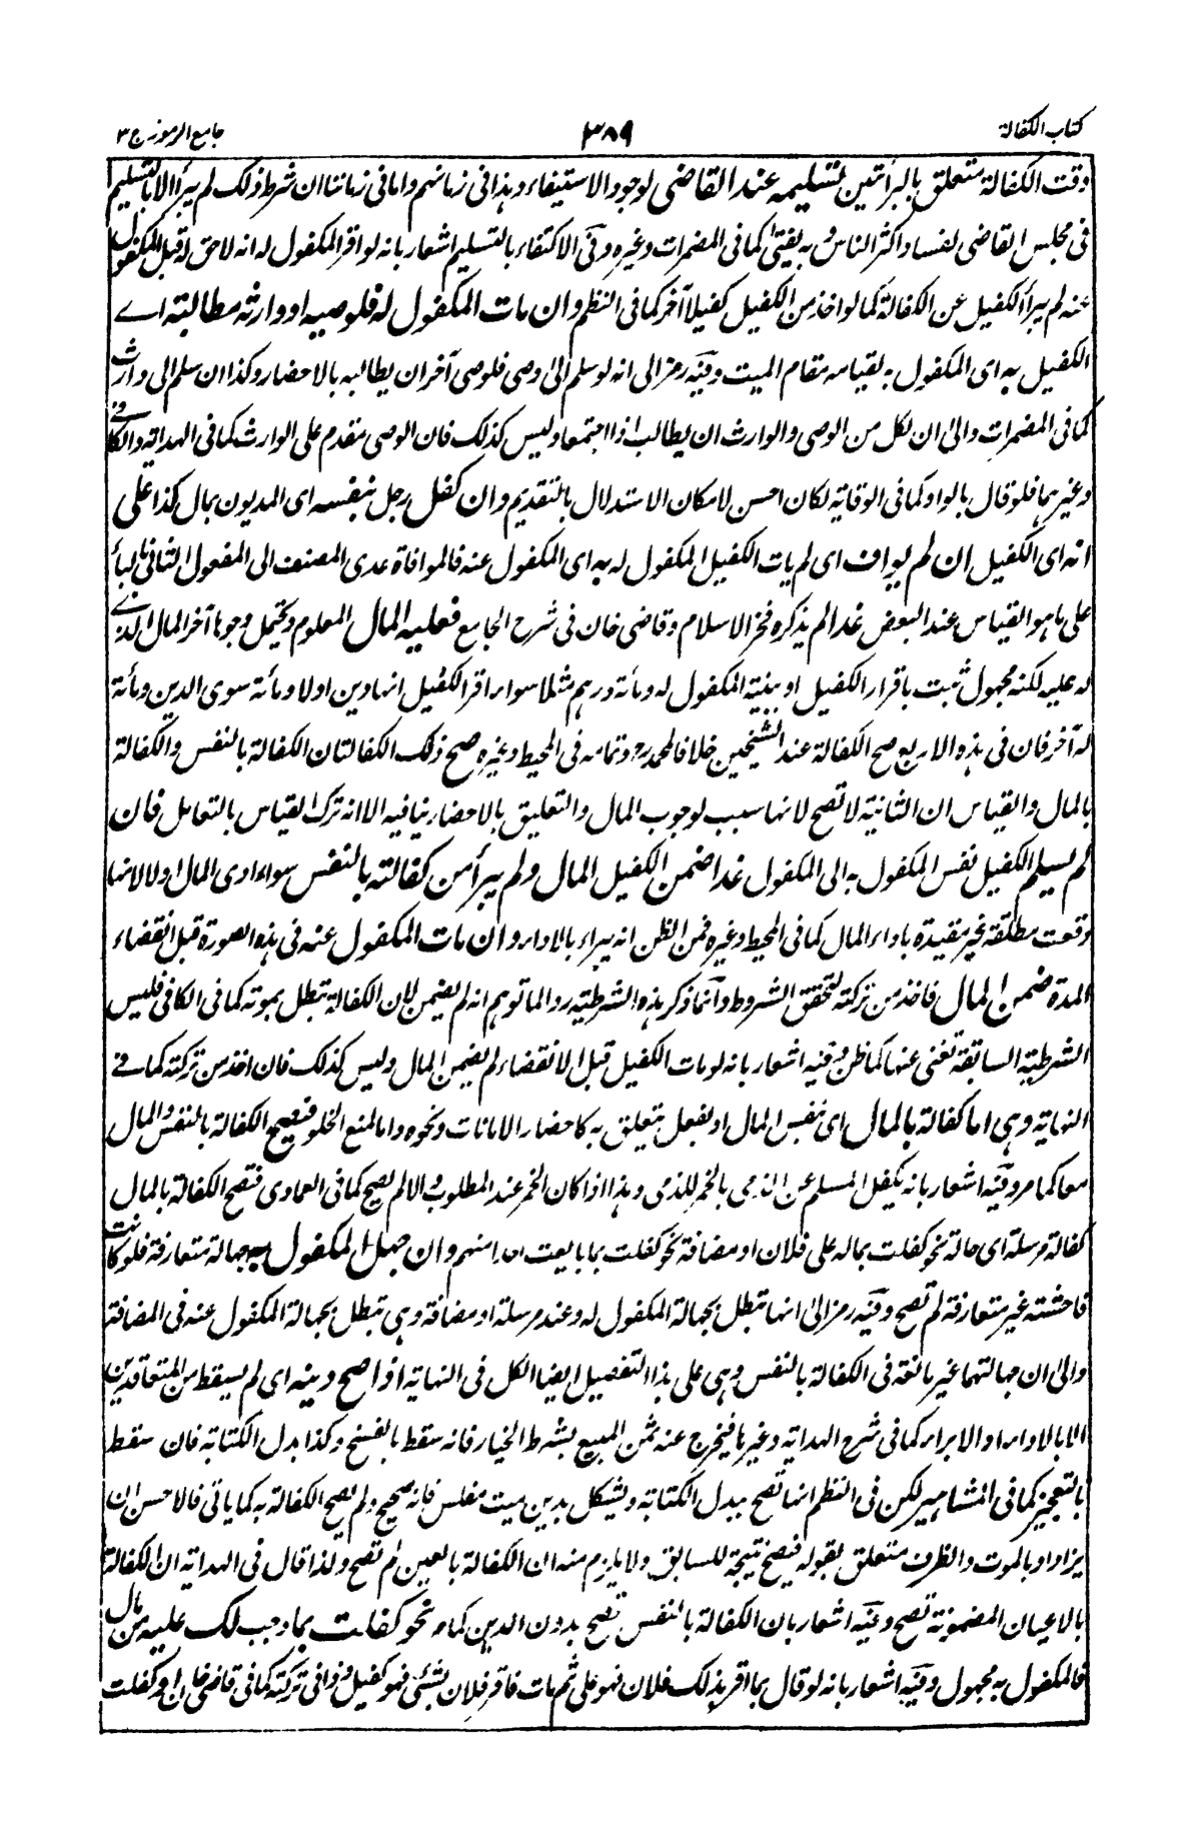 كتاب الكفالة
٣٨٩
جامع الرموز ج ٣
وقت الكفالة متعلق بالبرأتين بتسليمه عند القاضى لوجود الاستيفاء وهذا فى زمانهم واما فى زماننا ان شرط ذلك لم يبرأ الا بالتسليم
فى مجلس القاضى لفساد اكثر الناس وبه يفتى كما فى المضمرات وغيره وفى الاكتفاء بالتسليم اشعار بانه لو اقر المكفول له انه لا حق له قبل المكفول
عنه لم يبرأ الكفيل عن الكفالة كما لو اخذ من الكفيل كفيلا آخر كما فى النظم وان مات المكفول له فلوصيه او وارثه مطالبته اے
الكفيل به اى المكفول به لقيامه مقام الميت وفيه رمز الى انه لو سلم الى وصى فلوصى آخر ان يطالبه بالاحضار وكذا ان سلم الى وارث
كما فى المضمرات والى ان لكل من الوصى والوارث ان يطالب اذا اجتمعا وليس كذلك فان الوصى مقدم على الوارث كما فى الهداية والكافے
وغيرهما فلو قال بالواو كما فى الوقاية لكان احسن لامكان الاستدلال بالتقديم وان كفل رجل بنفسه اى المديون بمال كذا على
انه اى الكفيل ان لم يواف اى لم يات الكفيل المكفول له به اى المكفول عنه فالموافاة عدى المصنف الى المفعول الثانى بالباء
على ما هو القياس عند البعض غدا لم يذكره فخر الاسلام وقاضى خان فى شرح الجامع فعليه المال المعلوم ويحتمل وجوها آخر المال الذے
له عليه لكنه مجهول ثبت باقرار الكفيل او ببينة المكفول له ومأة درهم مثلا سواء اقر الكفيل انها دين اولا ومأة سوى الدين ومأة
له آخر فان فى هذه الاربع صح الكفالة عند الشيخين خلافا لمحمد رح وتمامه فى المحيط وغيره صح ذلك الكفالتان الكفالة بالنفس والكفالة
بالمال والقياس ان الثانية لا تصح لانها سبب لوجوب المال والتعليق بالاحضار ينافيه الا انه ترك القياس بالتعامل فان
لم يسلم الكفيل نفس المكفول به الى المكفول غدا ضمن الكفيل المال ولم يبرأ من كفالته بالنفس سواء ادى المال اولا لانها
وقعت مطلقة غير مقيدة باداء المال كما فى المحيط وغيره فمن الظن انه يبراء بالاداء وان مات المكفول عنه فى هذه الصورة قبل انقضاء
المدة ضمن المال فاخذ من تركته لتحقق الشروط وانما ذكر هذه الشرطية رد الما توهم انه لم يضمن لان الكفالة تبطل بموته كما فى الكافى فليس
الشرطية السابقة تغنى عنها كما ظن وفيه اشعار بانه لو مات الكفيل قبل الانقضاء لم يضمن المال وليس كذلك فان اخذ من تركته كما فے
النهاية وهى اما كفالة بالمال اى بنفس المال او بفعل يتعلق به كاحضار الامانات ونحوه واما لمنع الخلو فيصح الكفالة بالنفس والمال
معا كما مر وفيه اشعار بانه يكفل المسلم عن الذمى بالخمر للذمى وهذا اذا كان الخمر عند المطلوب والا لم يصح كما فى العمادى فتصح الكفالة بالمال
كفالة مرسلة اى حالة نحو كفلت بماله على فلان او مضافة نحو كفلت بما بايعت احدا منهم وان جهل المكفول به جهالة متعارفة فلو كانت
فاحشة غير متعارفة لم تصح وفيه رمز الى انها تبطل بجهالة المكفول له وعنه مرسلة او مضافة وهى تبطل بجهالة المكفول عنه فى المضافة
والى ان جهالتها غير مانعة فى الكفالة بالنفس وهى على هذا التفصيل ايضا الكل فى النهاية اذا صح دينه اى لم يسقط من المتعاقدين
الا بالاداء او الابراء كما فى شرح الهداية وغيرها فيخرج عنه ثمن المبيع بشرط الخيار فانه سقط بالفسخ وكذا بدل الكتابة فان سقط
بالتعجيز كما فى المشاهير لكن فى النظم انها تصح ببدل الكتابة ويشكل بدين ميت مفلس فانه صحيح ولم يصح الكفالة به كما ياتى فالاحسن ان
يزاد او بالموت والظرف متعلق بقوله فيصح نتيجة للسابق ولا يلزم منه ان الكفالة بالعين لم تصح ولذا قال فى الهداية ان الكفالة
بالاعيان المضمونة تصح وفيه اشعار بان الكفالة بالنفس تصح بدون الدين كما مر نحو كفلت بما وجب لك عليه من مال
فالمكفول به مجهول وفيه اشعار بانه لو قال بما اقر بذلك فلان فهو على ثم مات فاقر فلان بشئ فهو كفيل وفى تركته كما فى قاضى خان او كفلت